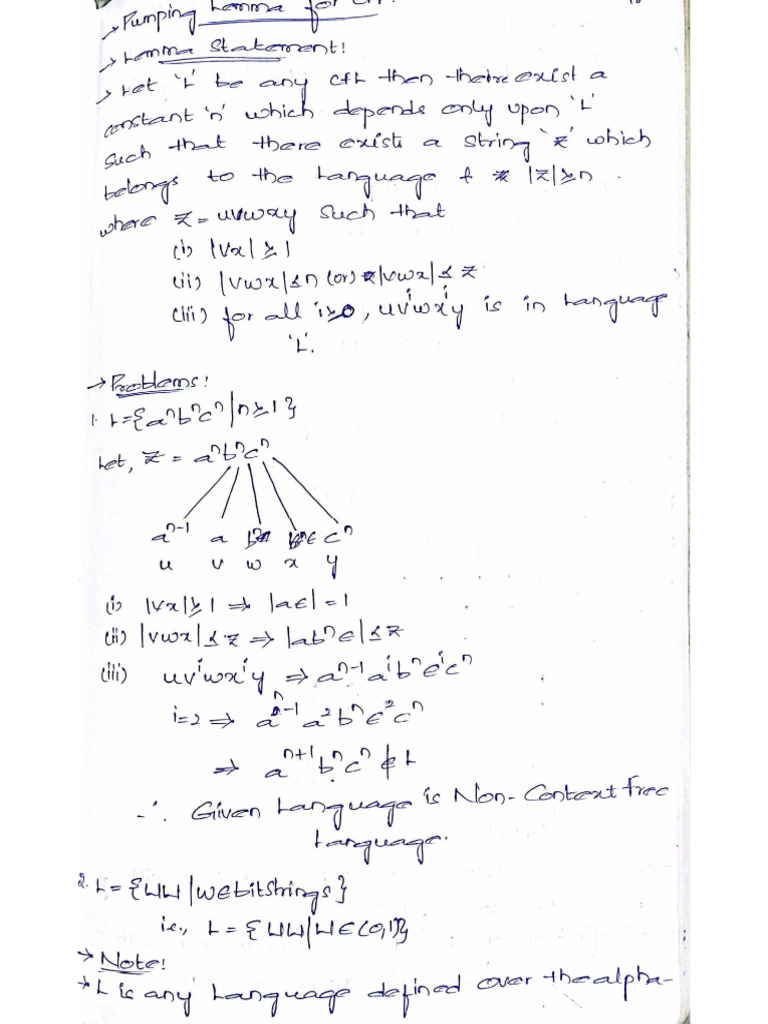 → Pumping Lemma for
→ Lemma Statement!
→ Let 'L' be any CFL then there exist a
constant 'n' which depends only upon 'L'
such that there exists a string 'z' which
belongs to the Language & |z|≥n.
where z = uvwxy such that
(i) |vx| ≥ 1
(ii) |vwx| ≤ n (or) |vwx| ≤ z
(iii) for all i≥0, uvⁱwxⁱy is in Language
'L'.
→ Problems!
1. L={aⁿbⁿcⁿ|n≥1}
Let, z = aⁿbⁿcⁿ
aⁿ⁻¹ a bⁿ ϵ cⁿ
u v w x y
(i) |vx|≥1 ⇒ |aϵ|=1
(ii) |vwx| ≤ z ⇒ |abⁿϵ| ≤ z
(iii) uvⁱwxⁱy ⇒ aⁿ⁻¹aⁱbⁿϵⁱcⁿ
i=2 ⇒ aⁿ⁻¹a²bⁿϵ²cⁿ
⇒ aⁿ⁺¹bⁿcⁿ ∉ L
∴ Given Language is Non-Context free
Language.
2. L={WW|W∈bitstrings}
i.e., L={WW|W∈(0,1)}
→ Note!
→ L is any Language defined over the alpha-